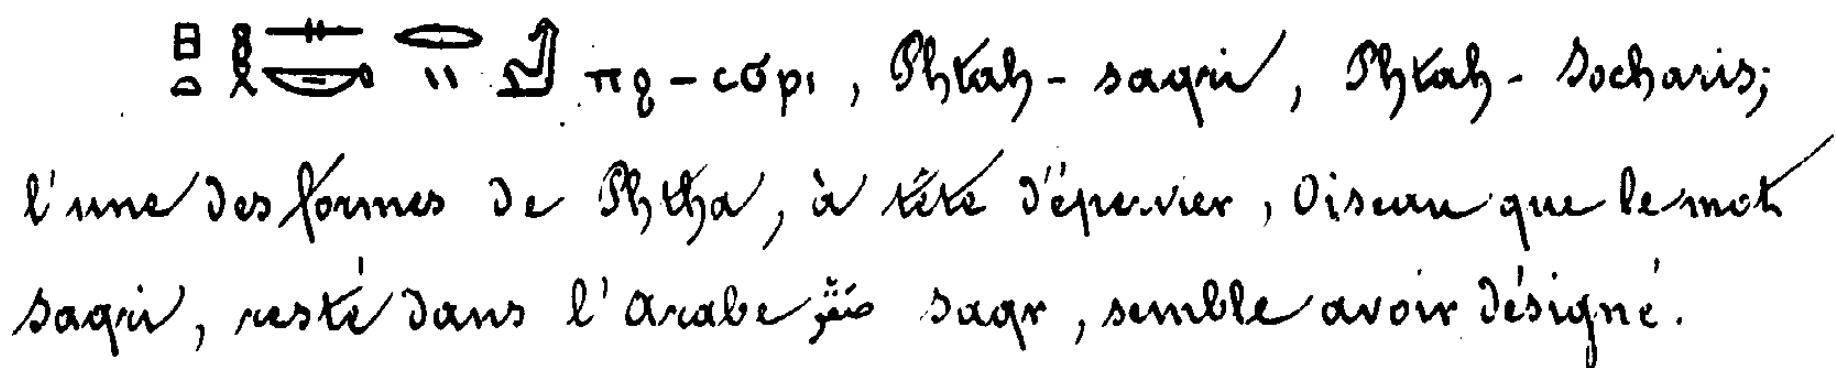 πϩ-ⲥⲟϭⲣⲓ, Phtah-saqri, Phtah-Socharis;
l'une des formes de Phtha, à tête d'épervier, Oiseau que le mot
saqri, resté dans l'arabe صقر saqr, semble avoir désigné.